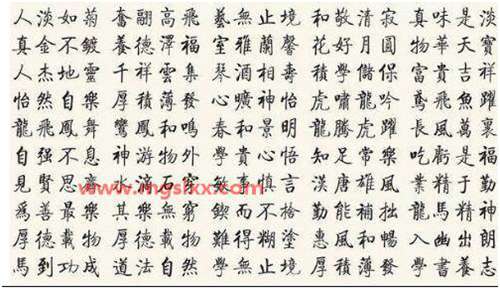 人淡如菊 奮翮高飛 藝無止境 和敬清寂 真味是淡
真金不鍍 養德澤福 室雅蘭馨 花好月圓 物華天寶
人杰地靈 千祥雲集 琴酒相壽 積學儲保 富貴吉祥
怡然自樂 厚積薄發 心曠神怡 虎嘯龍吟 鳶飛魚躍
龍飛鳳舞 鸞鳳和鳴 春和景明 龍騰虎躍 長風萬裏
自强不息 神游物外 學貴心悟 知足常樂 吃虧是福
見賢思齊 水滴石穿 慎言 漢唐雄風 於勤
為善最樂 其樂無窮 鍥而不捨 勤能補拙 馬精神
厚德載物 厚德載物 難得糊塗 惠風和暢 入幽出朗
馬到功成 道法自然 學無止境 厚積薄發 學書養志